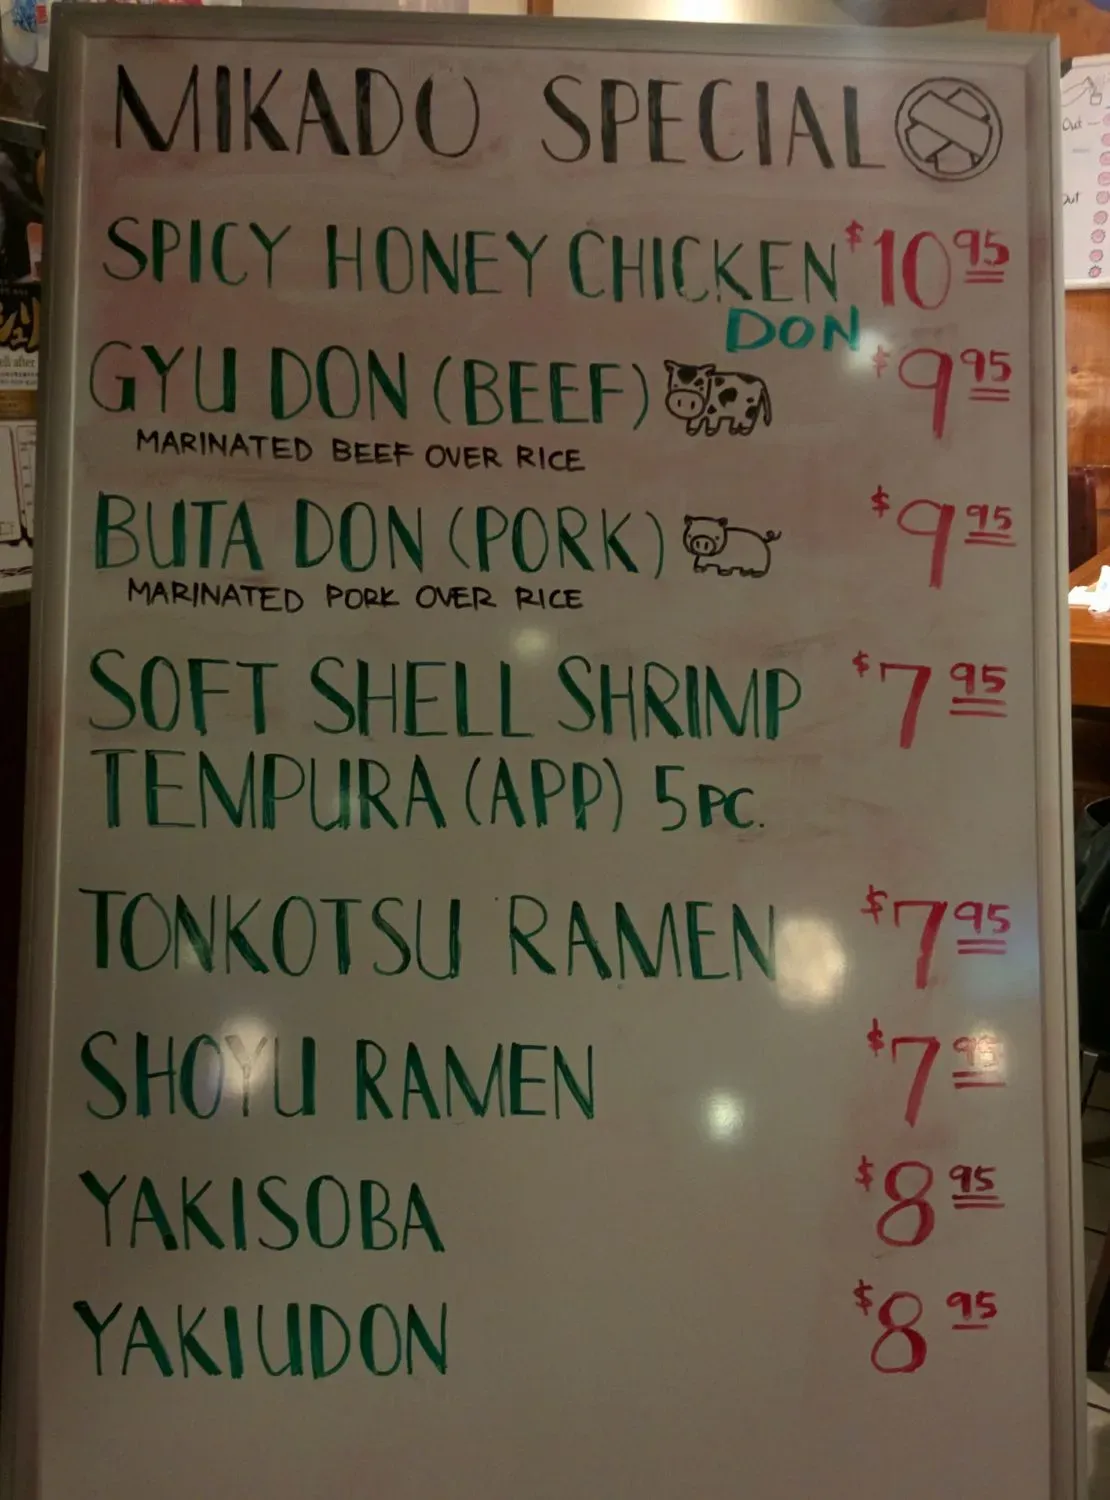 MIKADO SPECIAL
SPICY HONEY CHICKEN $10 95
DON
GYU DON (BEEF) $9 95
MARINATED BEEF OVER RICE
BUTA DON (PORK) $9 95
MARINATED PORK OVER RICE
SOFT SHELL SHRIMP $7 95
TEMPURA (APP) 5 PC.
TONKOTSU RAMEN $7 95
SHOYU RAMEN $7 95
YAKISOBA $8 95
YAKIUDON $8 95
Out
out